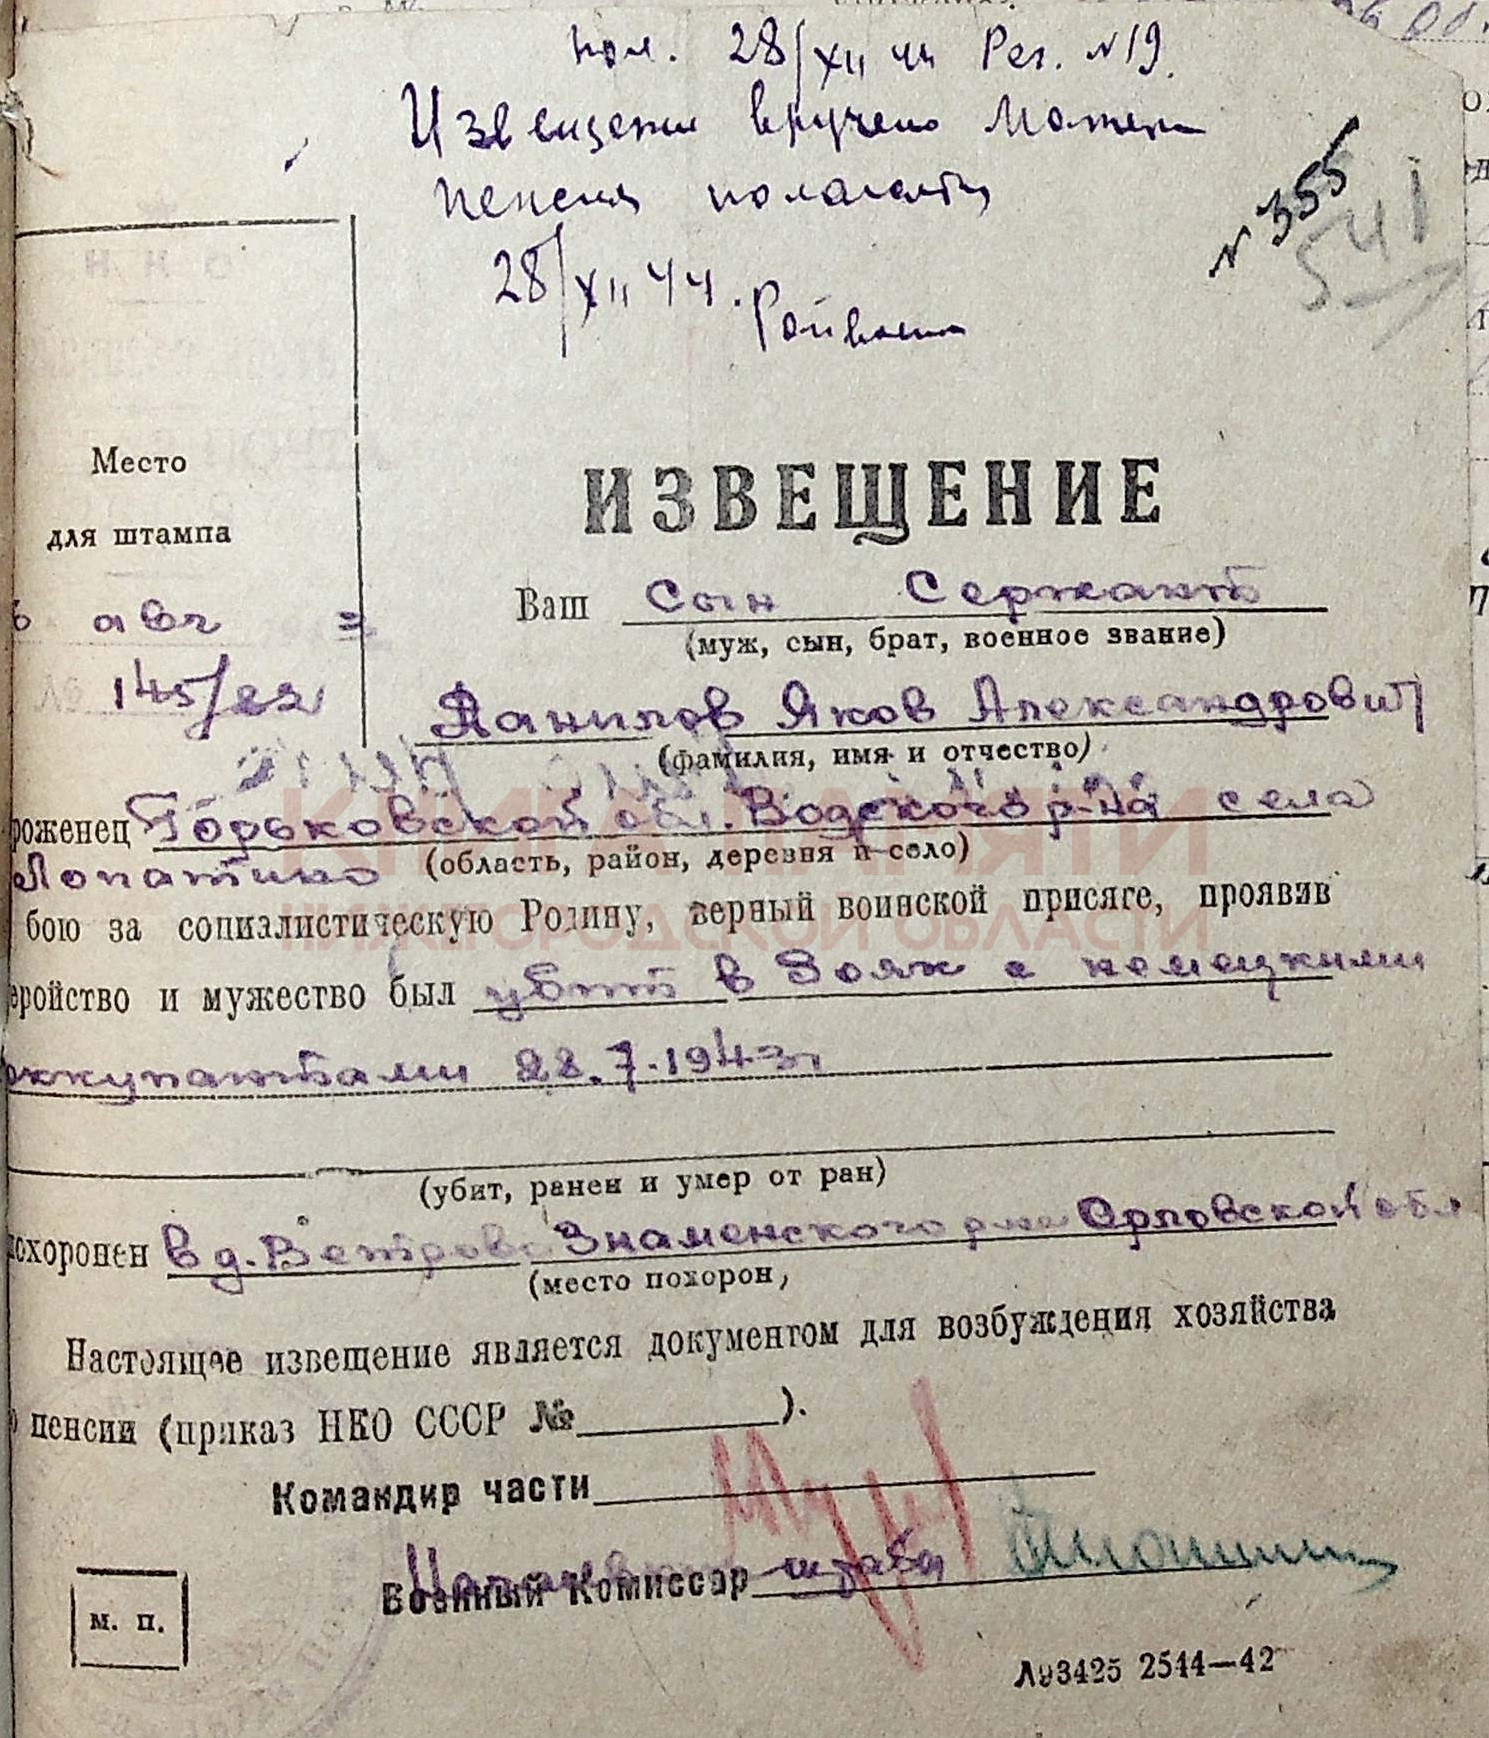 пол. 28/XII 44 Рег. №19.
Извещение вручено Матери
пенсия полагается
28/XII 44.
№ 355
541
Место
для штампа
авг
№ 145/22
ИЗВЕЩЕНИЕ
Ваш Сын Сержант
(муж, сын, брат, военное звание)
Данилов Яков Александрович
(фамилия, имя и отчество)
роженец Горьковской обл. Водского р-на села
Лопатино (область, район, деревня и село)
бою за социалистическую Родину, верный воинской присяге, проявив
еройство и мужество был убит в бою с немецкими
оккупантами 22.7.1943г
(убит, ранен и умер от ран)
похоронен в д. Ветрово Знаменского р-на Орловской обл
(место похорон)
Настоящее извещение является документом для возбуждения хозяйства
о пенсии (приказ НКО СССР №).
Командир части
Военный Комиссар штаба
м. п.
Л93425 2544—42
КНИГА ПАМЯТИ
НИЖЕГОРОДСКОЙ ОБЛАСТИ